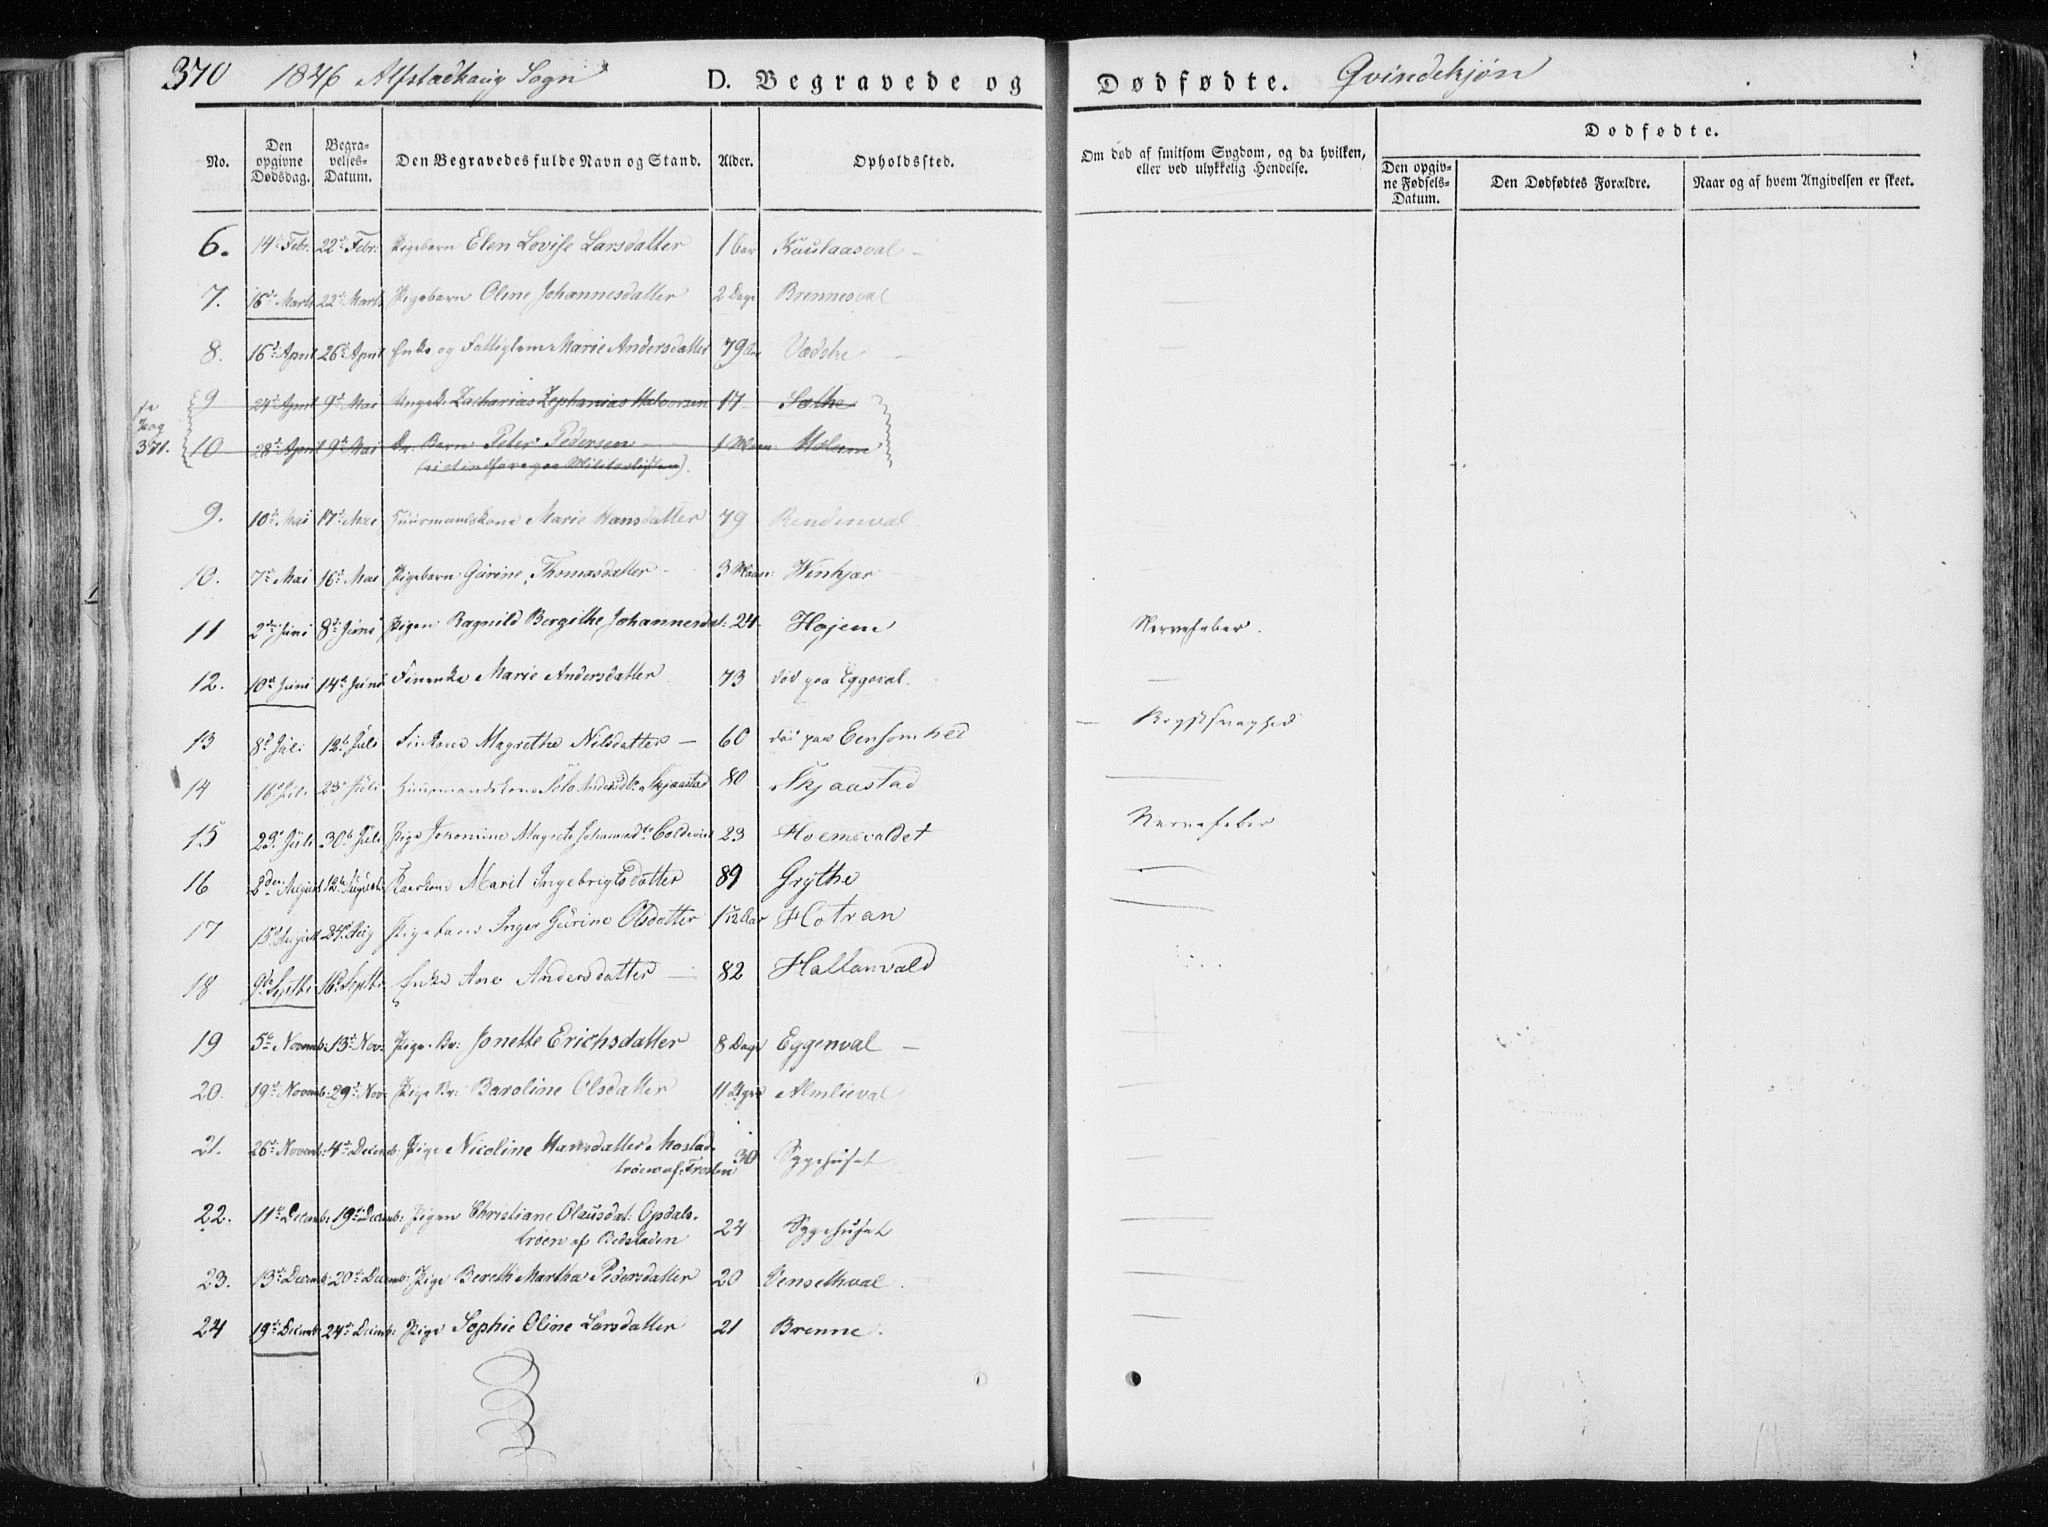 370 1846 Alfstadhaug Sogn D. Begravede og Dødfødte. Qvindekjøn
No. Den opgivne Dødsdag. Begravelses-Datum. Den Begravedes fulde Navn og Stand. Alder. Opholdssted. Om død af smitsom Sygdom, og da hvilken, eller ved ulykkelig Hendelse. Dødfødte.
Den opgivne Fødsels-Datum. Den Dødfødtes Forældre. Naar og af hvem Angivelsen er skeet.
6. 14de Febr: 22de Febr: Pigebarn Elen Lovise Larsdatter 1 Aar
7. 16de Marts 22de Marts Pigebarn Oline Johannesdatter 2 Dage Brennesval
8. 16de April 26de April Enke og Fattiglem Marie Andersdatter 79 Aar Vædske
9 24de April 9de Mai Ungk. Zacharias Zephanias Halvorsen 17 Sæthe
se Pag 371.
10 28de April 9de Mai Dr. Barn Peter Pedersen 1 Maan: Holem
9. 10de Mai 17de Mai Huusmandskone Marie Hansdatter 79
10. 7de Mai 16de Mai Pigebarn Gurine Thomasdatter 3 Maan: Winkjær
11 2den Juni 8de Juni Pigen Ragnild Bergithe Johannesdat: 24 Højem Nervefeber.
12. 10de Juni 14de Juni Finenke Marie Andersdatter 73 død paa Eggeval.
13 8de Juli 12te Juli Finkone Magrethe Nilsdatter 60 død paa Eensomhed Brystsvaghed
14 16de Juli 23de Juli Huusmandskone Andersdtr Skjaastad 80 Skjaastad
15 23de Juli 30te Juli Pige Magrete Johannesdtr 23 Hoemsvaldet Nervefeber
16 2den August 12te August Kaarkone Marit Ingebrigtsdatter 89 Grÿthe
17 15de August 24de Aug Pigebarn Inger Gurine Olsdatter Hotran
18 9de Septbr 16de Septbr Enke Ane Andersdatter 82 Hallanvald
19 5te Novemb: 15de Nov: Pige-Br: Jonette Erichsdatter 8 Dage Eggenval
20. 19de Novemb: 29de Nov: Pige Br: Baroline Olsdatter 11 Uger Almlieval
21. 26de Novemb: 4de Decemb: Pige Nicoline Hansdatter Mostad-
trøen af Frosten 30 Sygehuset
22. 11te Decemb: 19de Decemb: Pigen Christiane Olausdat: Opdals-
trøen af Bedstaden 24 Sygehuset
23. 13de Decemb: 20de Decemb: Pige Bereth Martha Pedersdatter 20 Vensethval
24 19de Decemb: 24de Decemb: Pige Sophie Oline Larsdatter 21 Brenne.